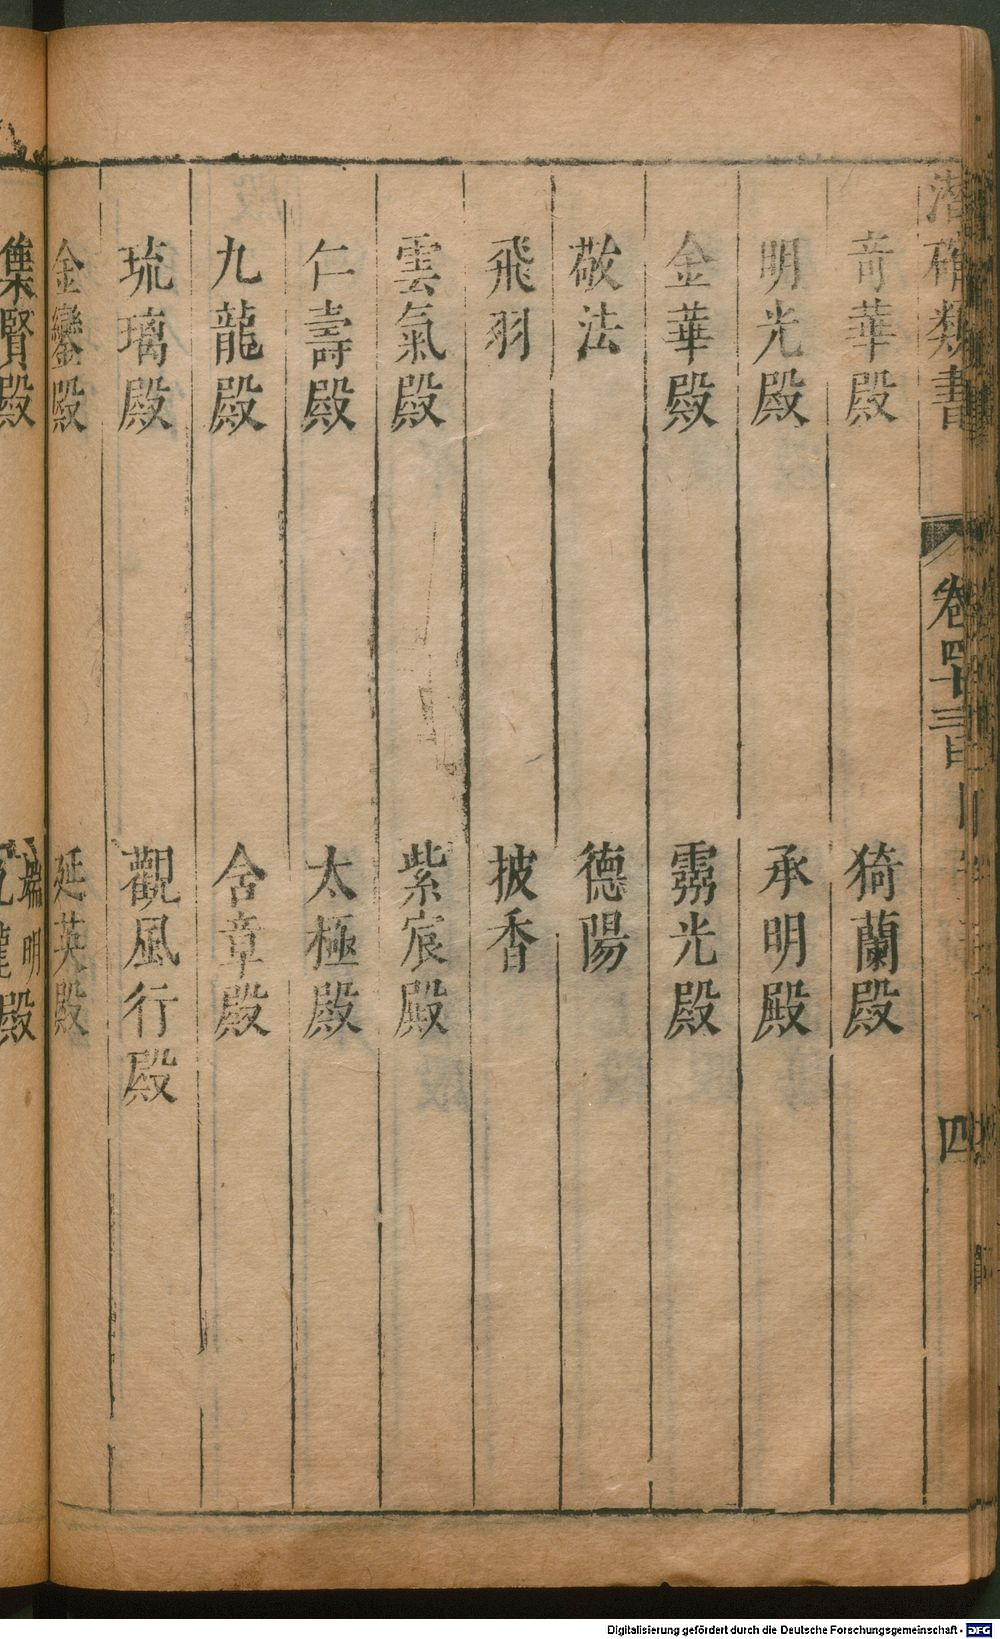 潛確類書 卷四十三目 四
竒華殿 猗蘭殿
明光殿 承明殿
金華殿 光殿
敬法 德陽
飛羽 披香
雲氣殿 紫宸殿
仁壽殿 太極殿
九龍殿 含章殿
琉璃殿 觀風行殿
金鑾殿 延英殿
集賢殿 瑞明殿
龍
Digitalisierung gefördert durch die Deutsche Forschungsgemeinschaft - DFG